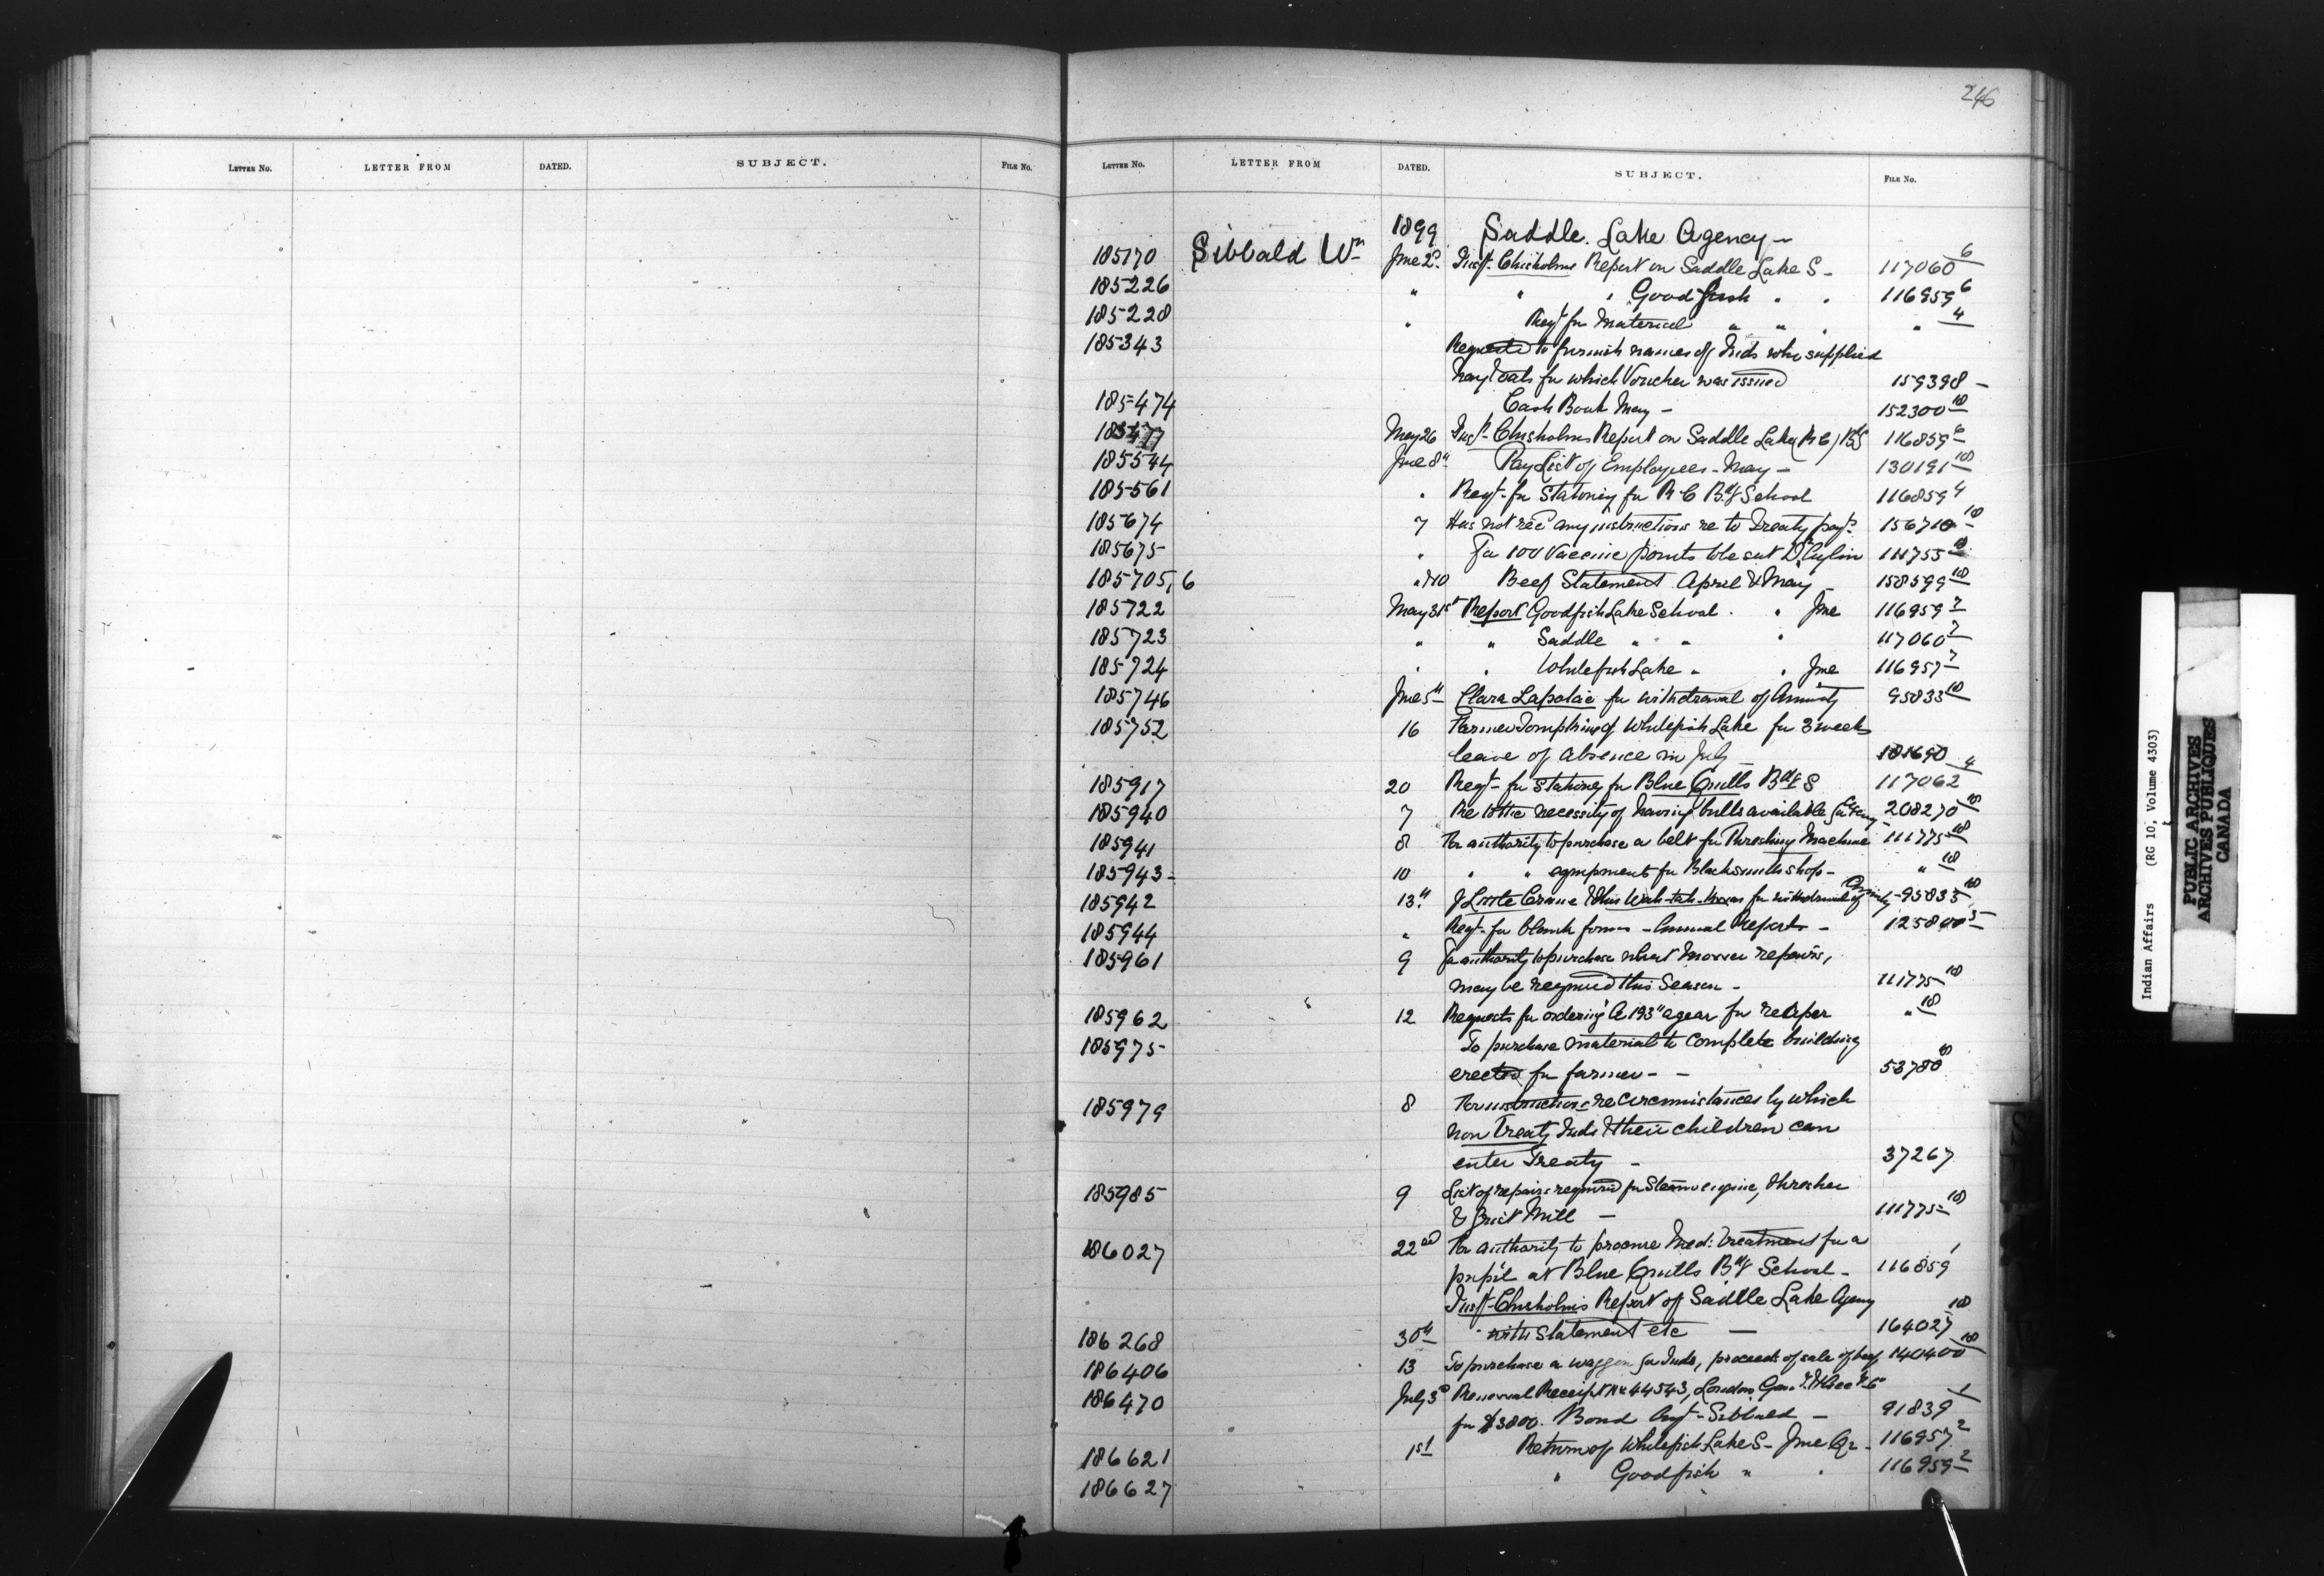 246
LETTER NO. LETTER FROM DATED. SUBJECT. FILE NO.
LETTER NO. LETTER FROM DATED. SUBJECT. FILE NO.
1899 Saddle Lake Agency -
185170 Sibbald Wm June 2d Insp. Chisholms Report on Saddle Lake S- 117060 6
185226 " " " Goodfish " " 116959 6
185228 " Reqt for Material " " " " 4
185343 Requested to furnish names of Inds who supplied
hay & oats for which Voucher was issued 159398 -
185474 Cash Book May - 152300 18
185477 May 26 Insp. Chisholms Report on Saddle Lake (R C) Bdg S 116859 6
185544 June 8th Pay List of Employees - May - 130191 18
185561 " Reqt for Stationery for R.C Bdg School 116859 4
185674 7 Has not rec'd any instructions re to Treaty payts 156710 18
185675 " For 100 Vaccine points to be sent Dr 111755 18
185705, 6 " & 10 Beef Statement April & May - 158599 18
185722 May 31st Report Goodfish Lake School " June 116959 7
185723 " " Saddle " " " 117060 7
185724 " " Whitefish Lake " " June 116957 7
185746 June 5th Clara Lapatac for withdrawal of Annuity 95833 18
185752 16 Farmer Tompkins of Whitefish Lake for 3 weeks
leave of absence in July - 181690
185917 20 Reqt - for Stationery for Blue Quills Bdg S 117062 4
185940 7 Re to the necessity of having bulls available for Agency 208270 18
185941 8 For authority to purchase a belt for Threshing Machine 111775 18
185943 - 10 " " equipment for Blacksmith shops - " 18
185942 13th J Little Crane & for withdrawal of Annuity - 95833 18
185944 " Reqt - for blank forms - Annual Reports - 125800 5
185961 9 For authority to purchase what mower repairs,
may be required this Season - 111775 18
185962 12 Requests for ordering "A 193" a gear for reaper " 18
185975 To purchase material to complete building
erected for farmer - - 53780 18
185979 8 For instructions re circumstances by which
non Treaty Inds & their children can
enter Treaty - 37267
185985 9 List of repairs required for Steam engine, thresher
& Grist Mill - 111775 18
186027 22nd For authority to procure Med: treatment for a
pupil at Blue Quills Bdg School - 116859 1
Insp. Chisholms Report of Saddle Lake Agency
186268 30th with statement etc - 164027 18
186406 13 To purchase a waggon for Inds, proceeds of sale of beef 140400 18
186470 July 3d Renewal Receipt No 44543, London Guar.
for $3800. Bond Agt - Sibbald - 91839 1
186621 1st Return of Whitefish Lake S - June Qr - 116957 2
186627 " Goodfish " " 116959 2
Indian Affairs (RG 10, Volume 4303)
PUBLIC ARCHIVES
ARCHIVES PUBLIQUES
CANADA